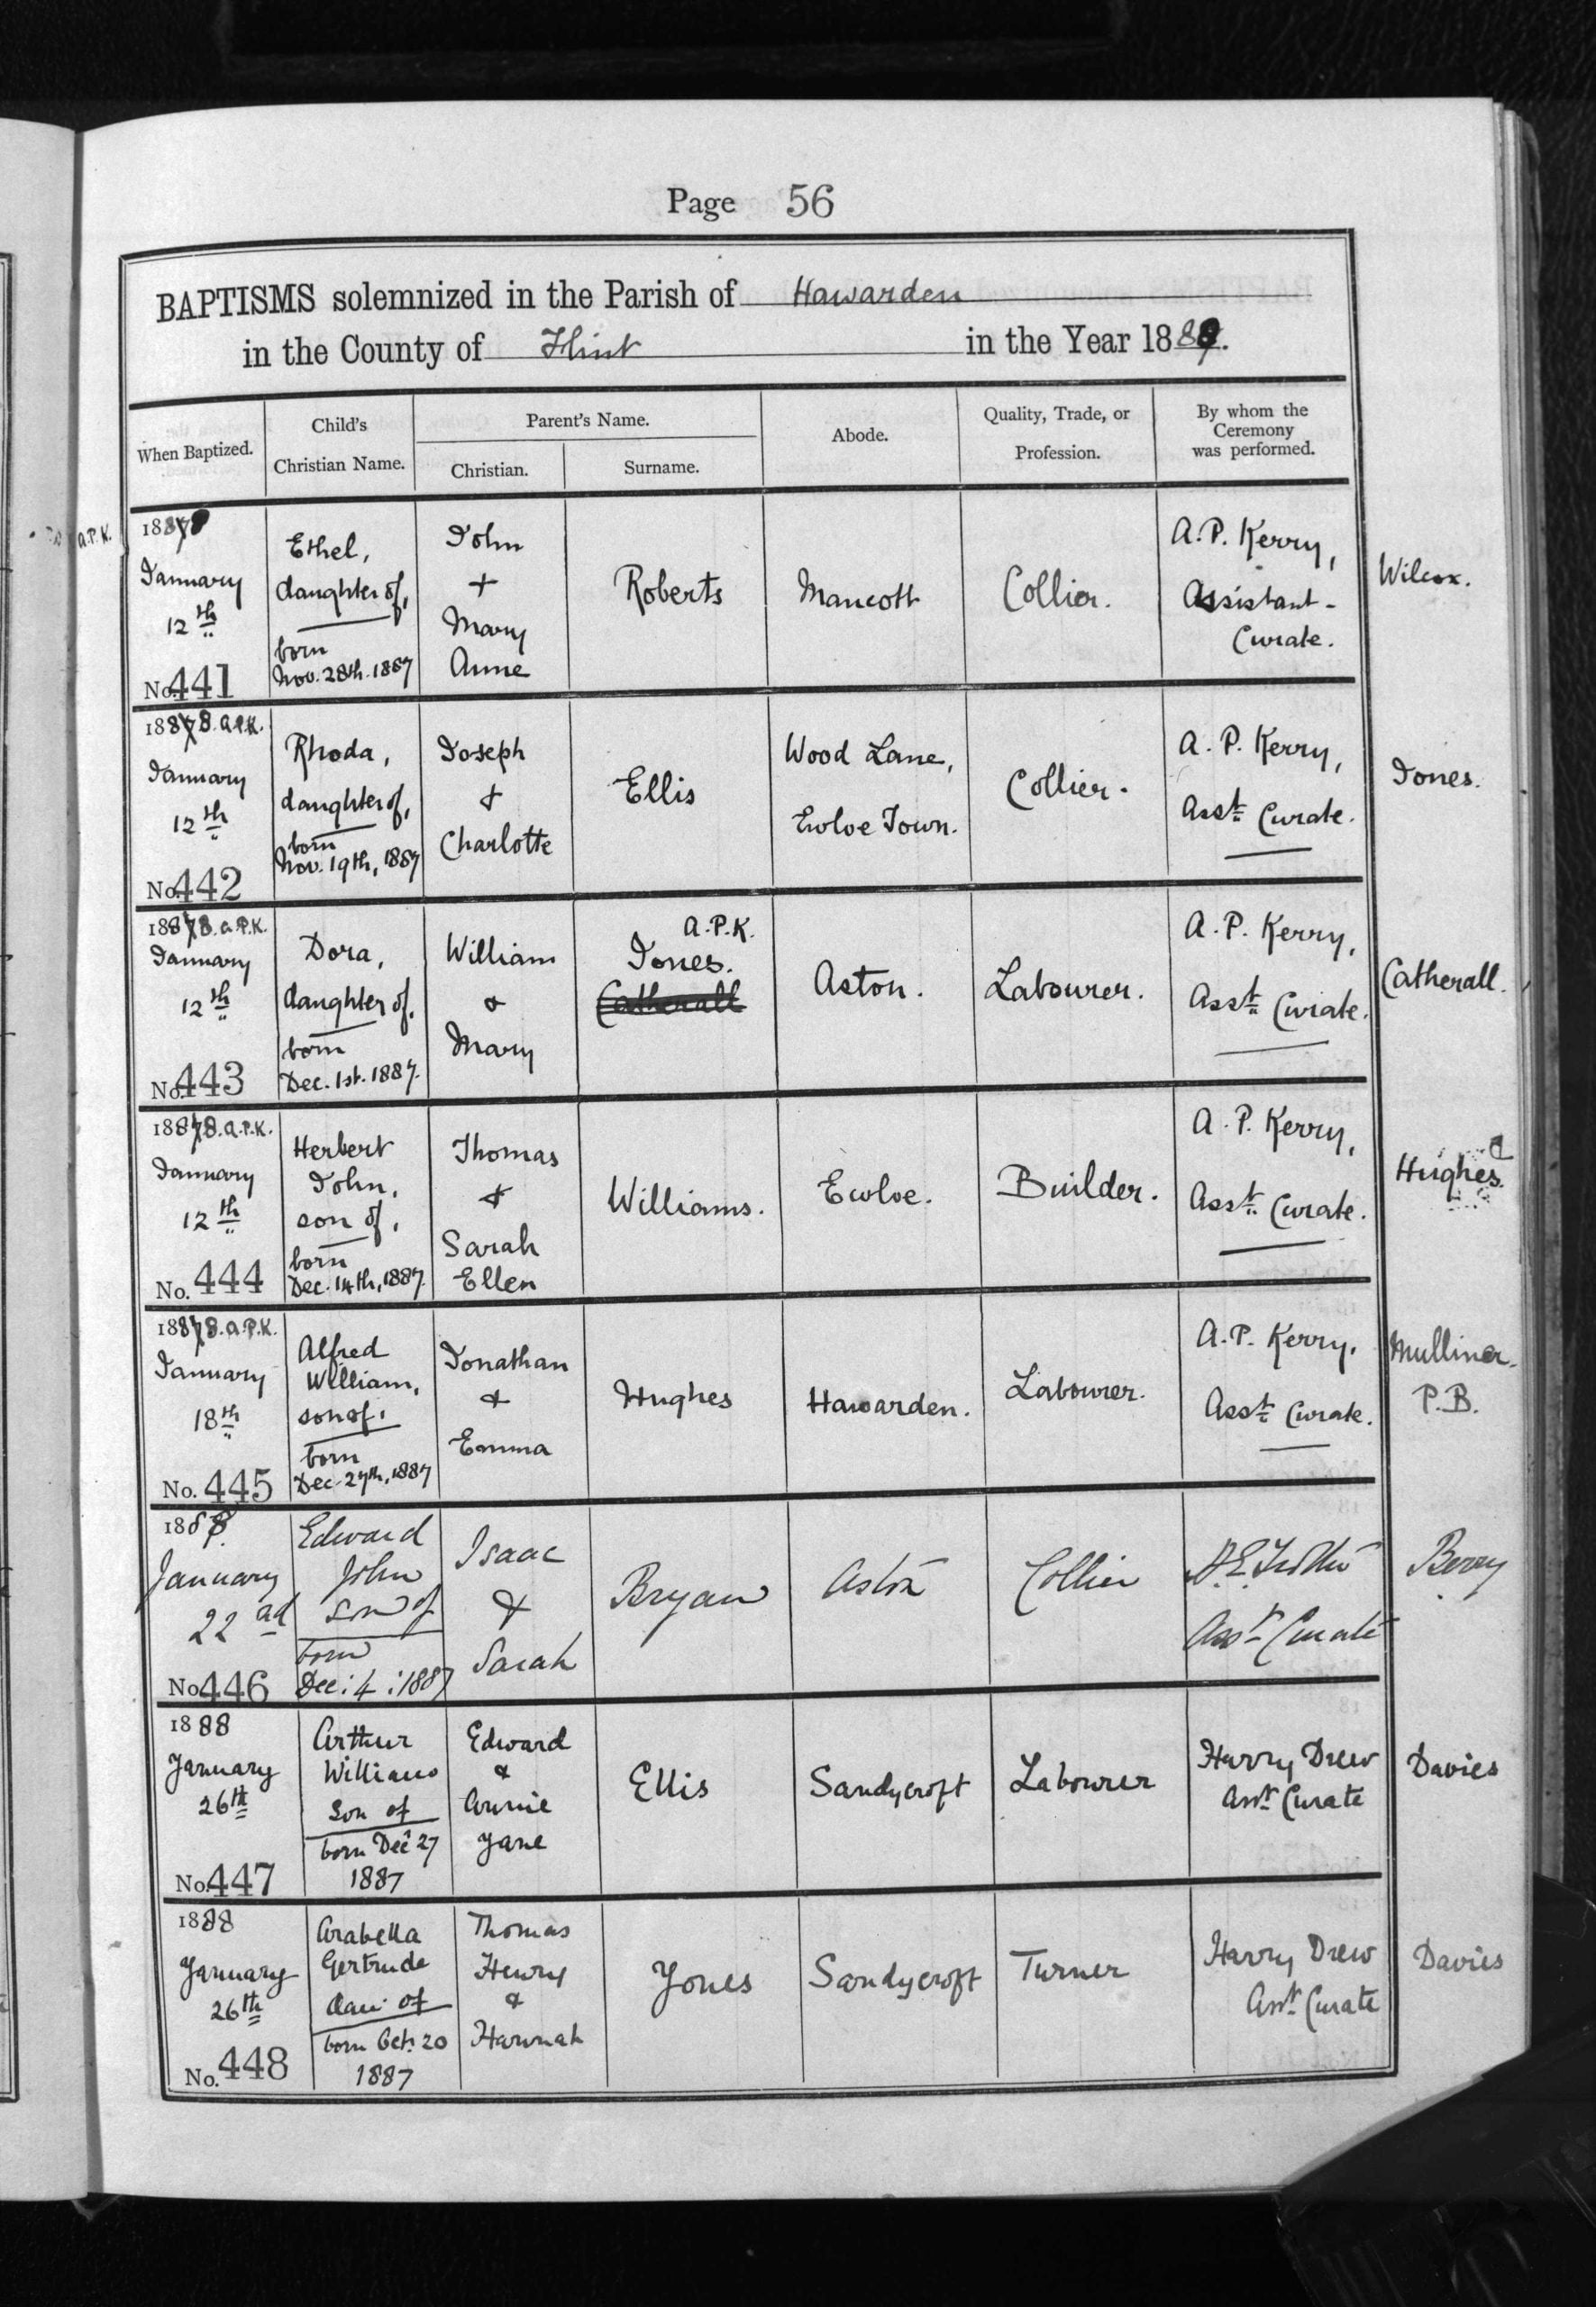 Page 56
BAPTISMS solemnized in the Parish of Hawarden
in the County of Flint in the Year 1888.
When Baptized.
Child's
Christian Name.
Parent's Name.
Christian.
Surname.
Abode.
Quality, Trade, or
Profession.
By whom the
Ceremony
was performed.
a.P.K.
1888
January
12th
No. 441
Ethel,
daughter of,
born
Nov. 28th. 1887
John
+
Mary
Anne
Roberts
Mancott
Collier.
A. P. Kerry,
Assistant-
Curate.
Wilcox.
18878. a.P.K.
January
12th
No. 442
Rhoda,
daughter of,
born
Nov. 19th, 1887
Joseph
&
Charlotte
Ellis
Wood Lane,
Ewloe Town.
Collier.
A. P. Kerry,
Asst Curate.
Jones.
18878. a.P.K.
January
12th
No. 443
Dora,
daughter of.
born
Dec. 1st. 1887.
William
&
Mary
A.P.K.
Jones.
Catherall
Aston.
Labourer.
A. P. Kerry,
Asst Curate.
Catherall.
18878. a.P.K.
January
12th
No. 444
Herbert
John,
son of,
born
Dec. 14th, 1887.
Thomas
&
Sarah
Ellen
Williams.
Ewloe.
Builder.
A. P. Kerry,
Asst Curate.
Hughes
18878. a.P.K.
January
18th
No. 445
Alfred
William,
son of,
born
Dec. 27th, 1887
Jonathan
&
Emma
Hughes
Hawarden.
Labourer.
A. P. Kerry,
Asst Curate.
Mulliner.
P.B.
1888.
January
22nd
No. 446
Edward
John
son of
born
Dec: 4: 1887
Isaac
&
Sarah
Bryan
Aston
Collier
Asst Curate
Berry
1888
January
26th
No. 447
Arthur
William
Son of
born Dec 27
1887
Edward
&
Annie
Jane
Ellis
Sandycroft
Labourer
Harry Drew
Asst Curate
Davies
1888
January
26th
No. 448
Arabella
Gertrude
dau: of
born Oct. 20
1887
Thomas
Henry
&
Hannah
Jones
Sandycroft
Turner
Harry Drew
Asst Curate
Davies